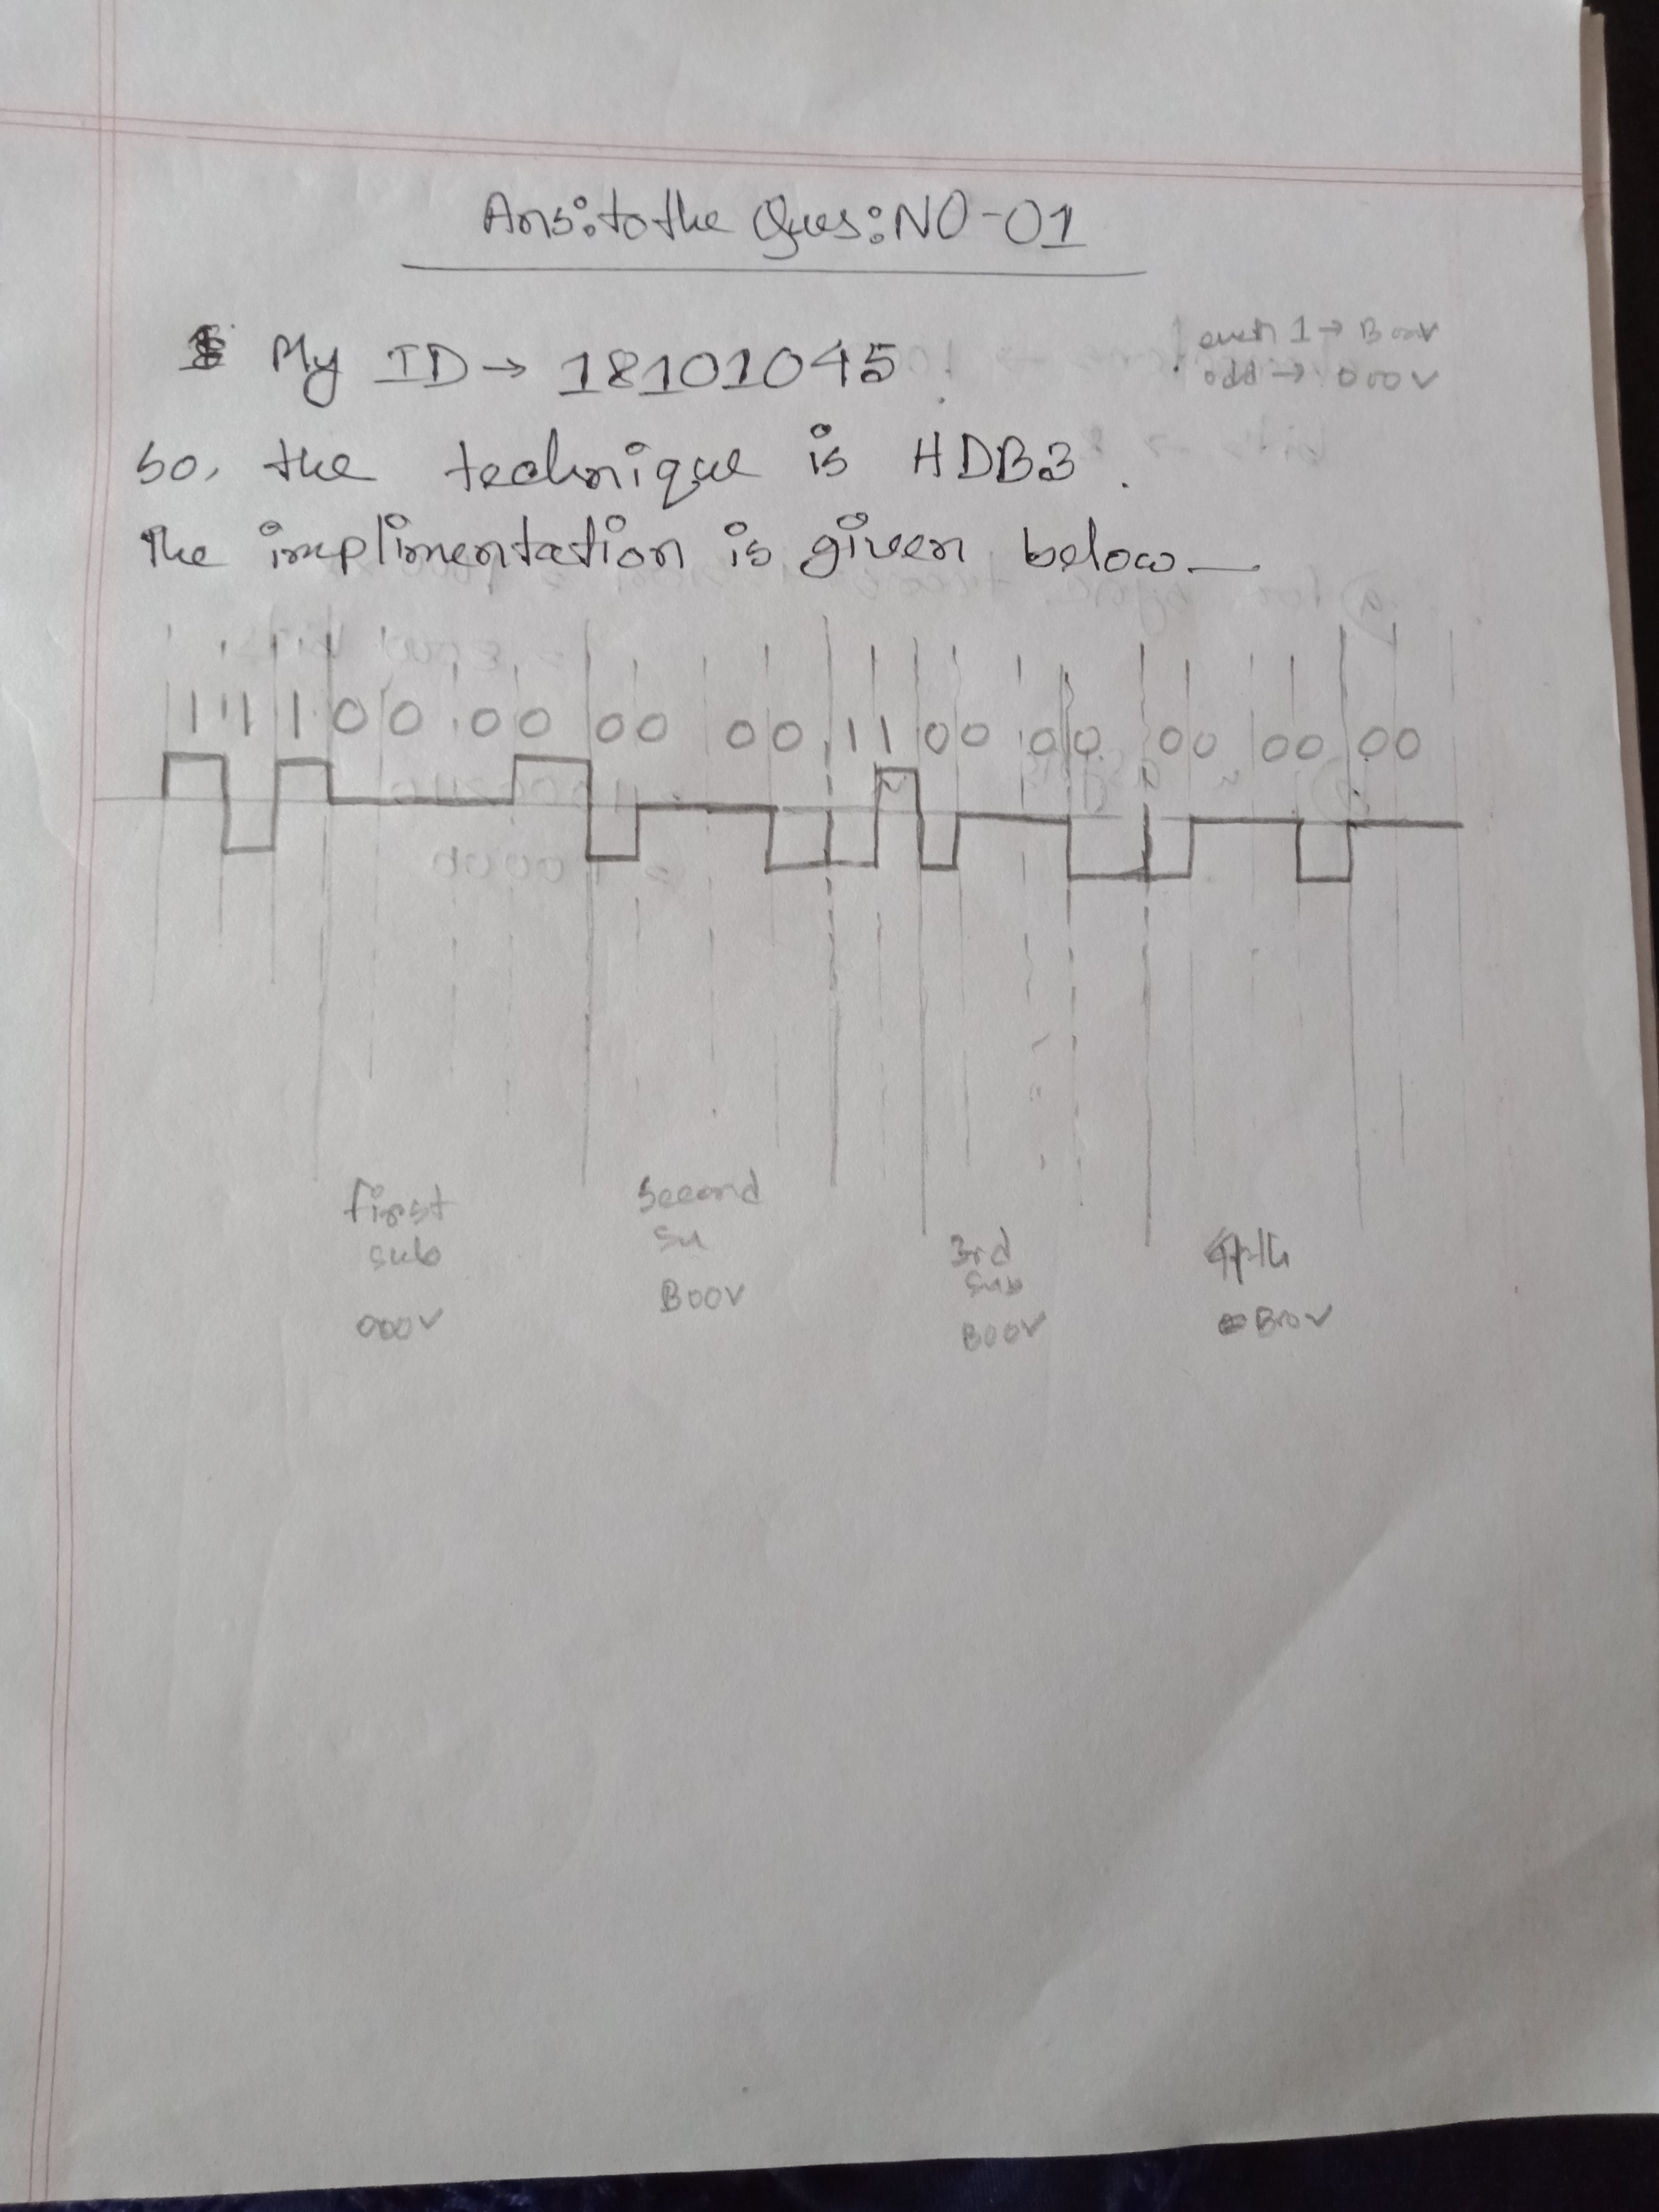 Ans: to the Ques: NO-01
My ID → 18101045
even 1 → B00V
odd → 000V
so, the technique is HDB3.
the implimentation is given below—
1 1 1 0 0 0 0 0 0 0 0 1 1 0 0 0 0 0 0 0 0 0 0
first second
sub su
3rd 4th
sub
000V B00V B00V B00V